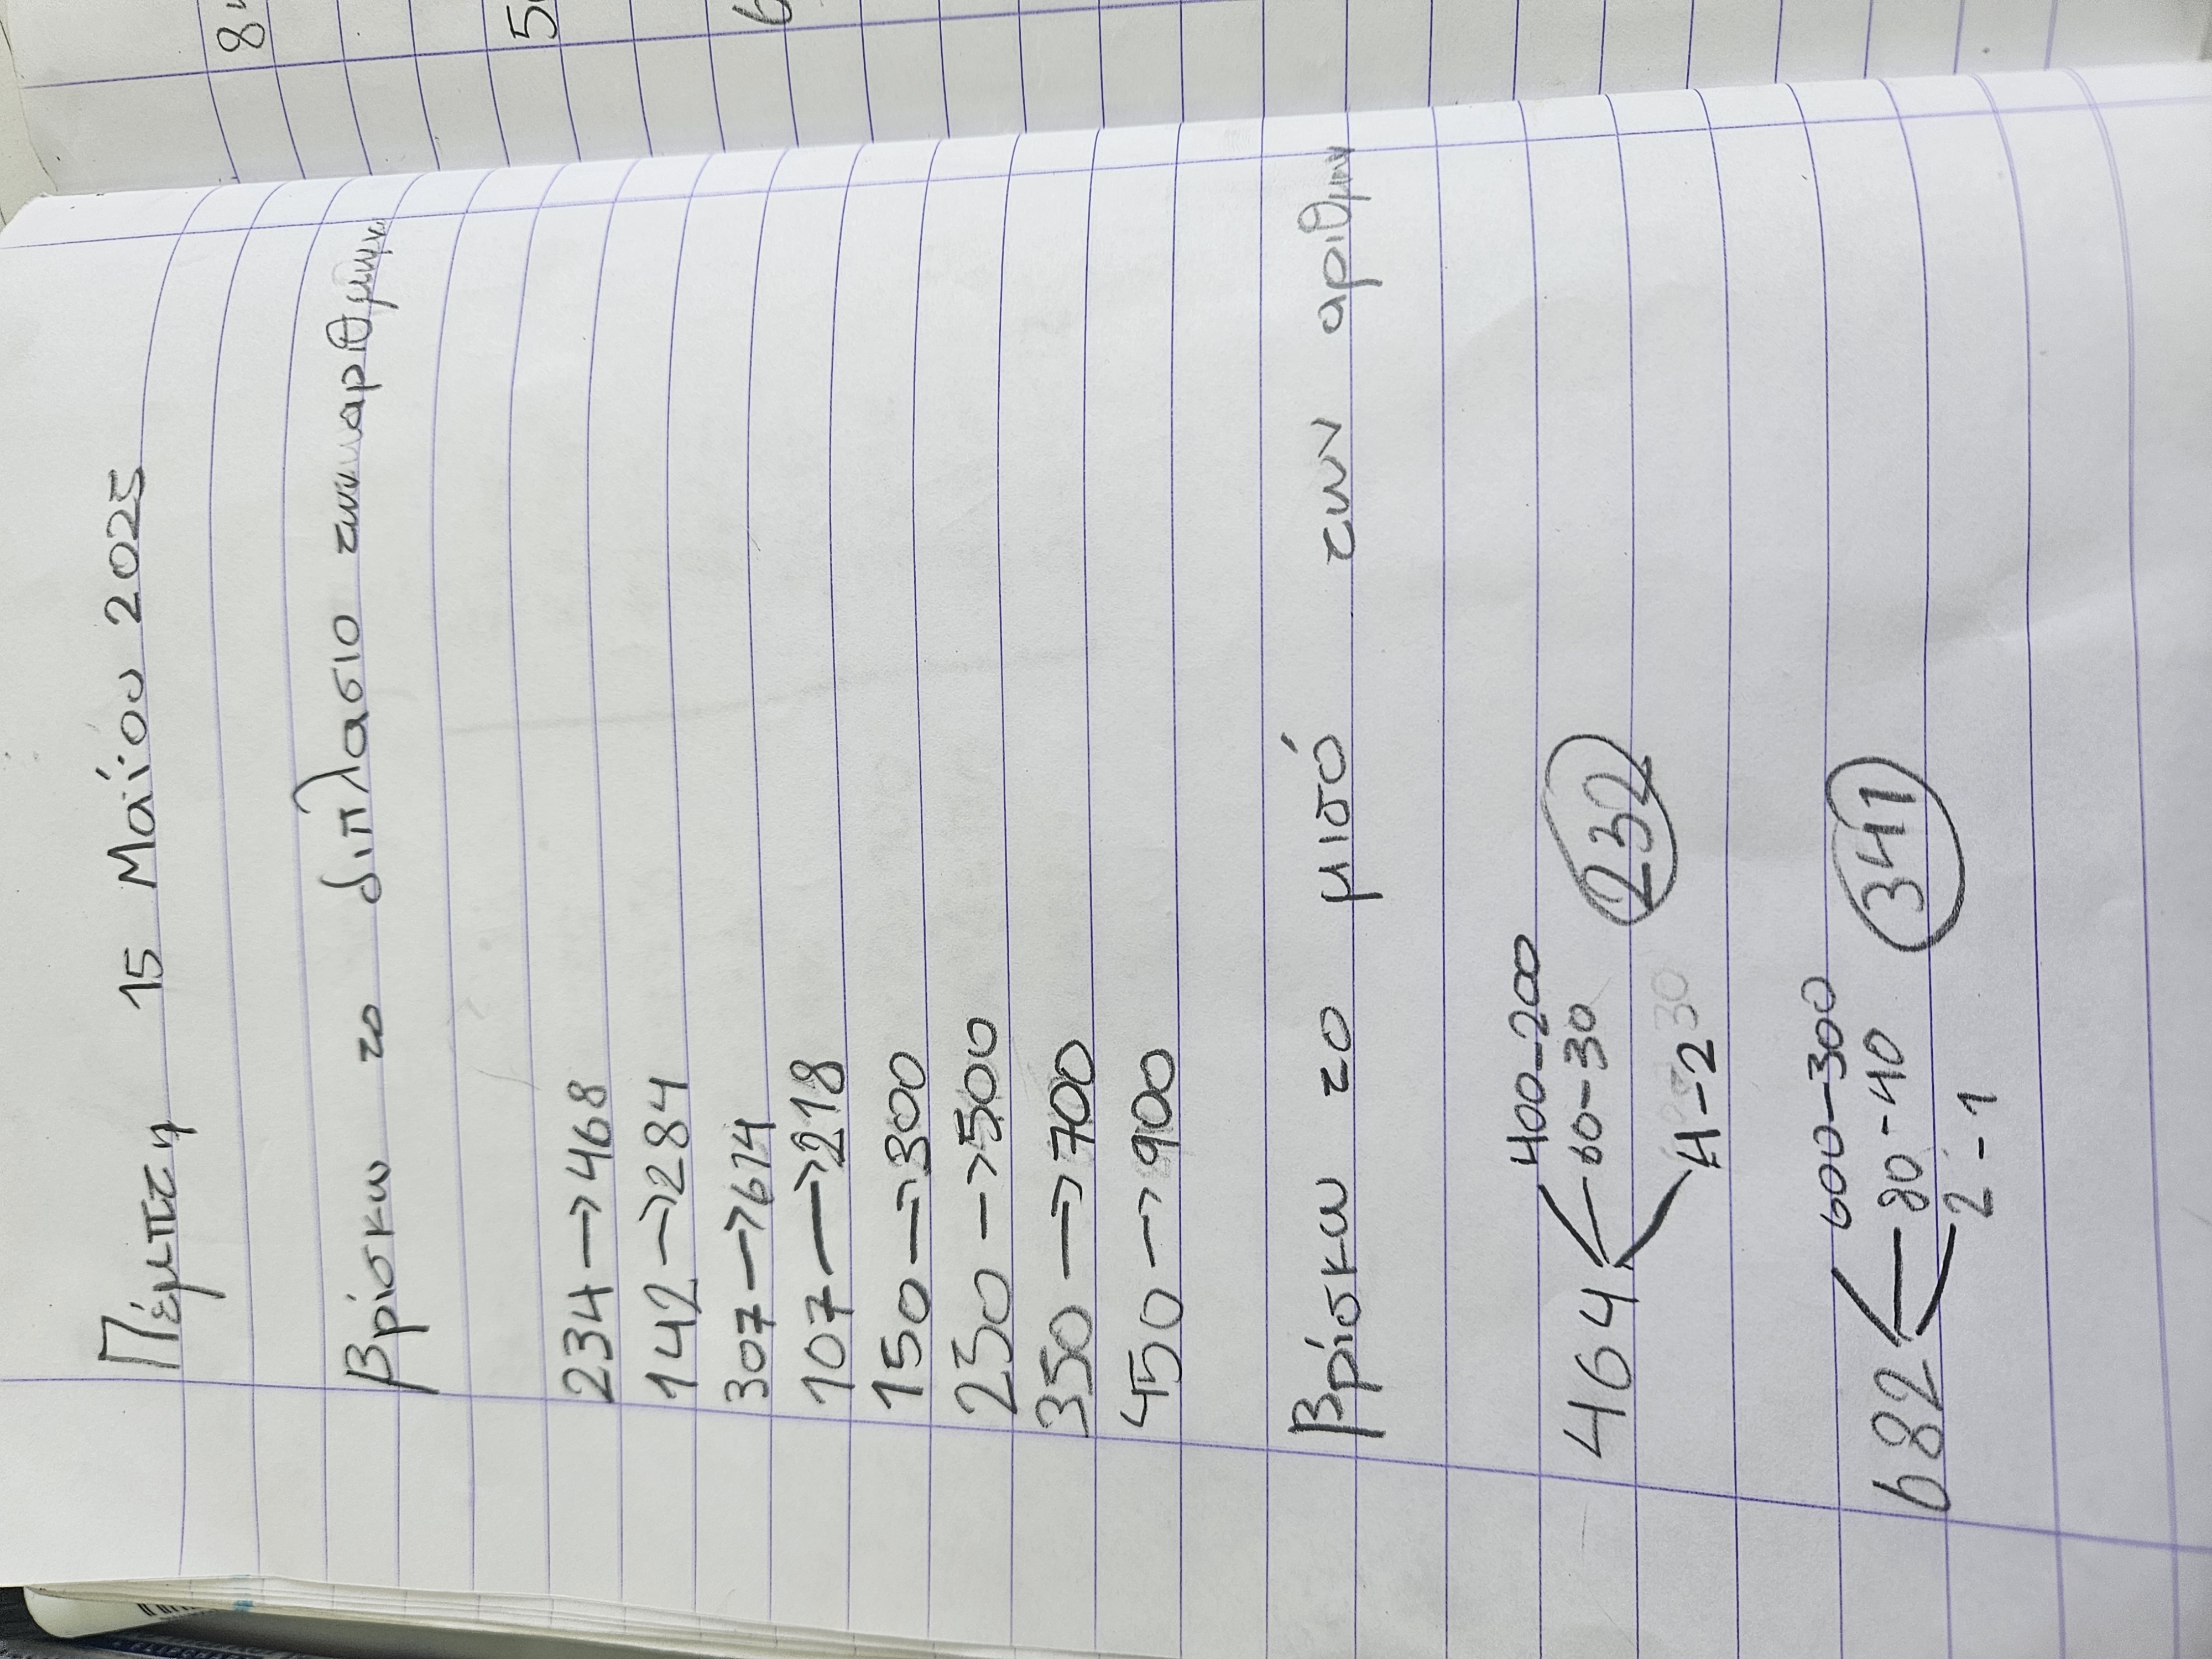 Πέμπτη 15 Μαΐου 2025
Βρίσκω το διπλασιο των αριθμων
234→468
142→284
307→614
107→218
150→300
250→500
350→700
450→900
Βρίσκω το μισό των αριθμων
400-200
464 60-30 232
4-2
600-300
682 80-40 341
2-1